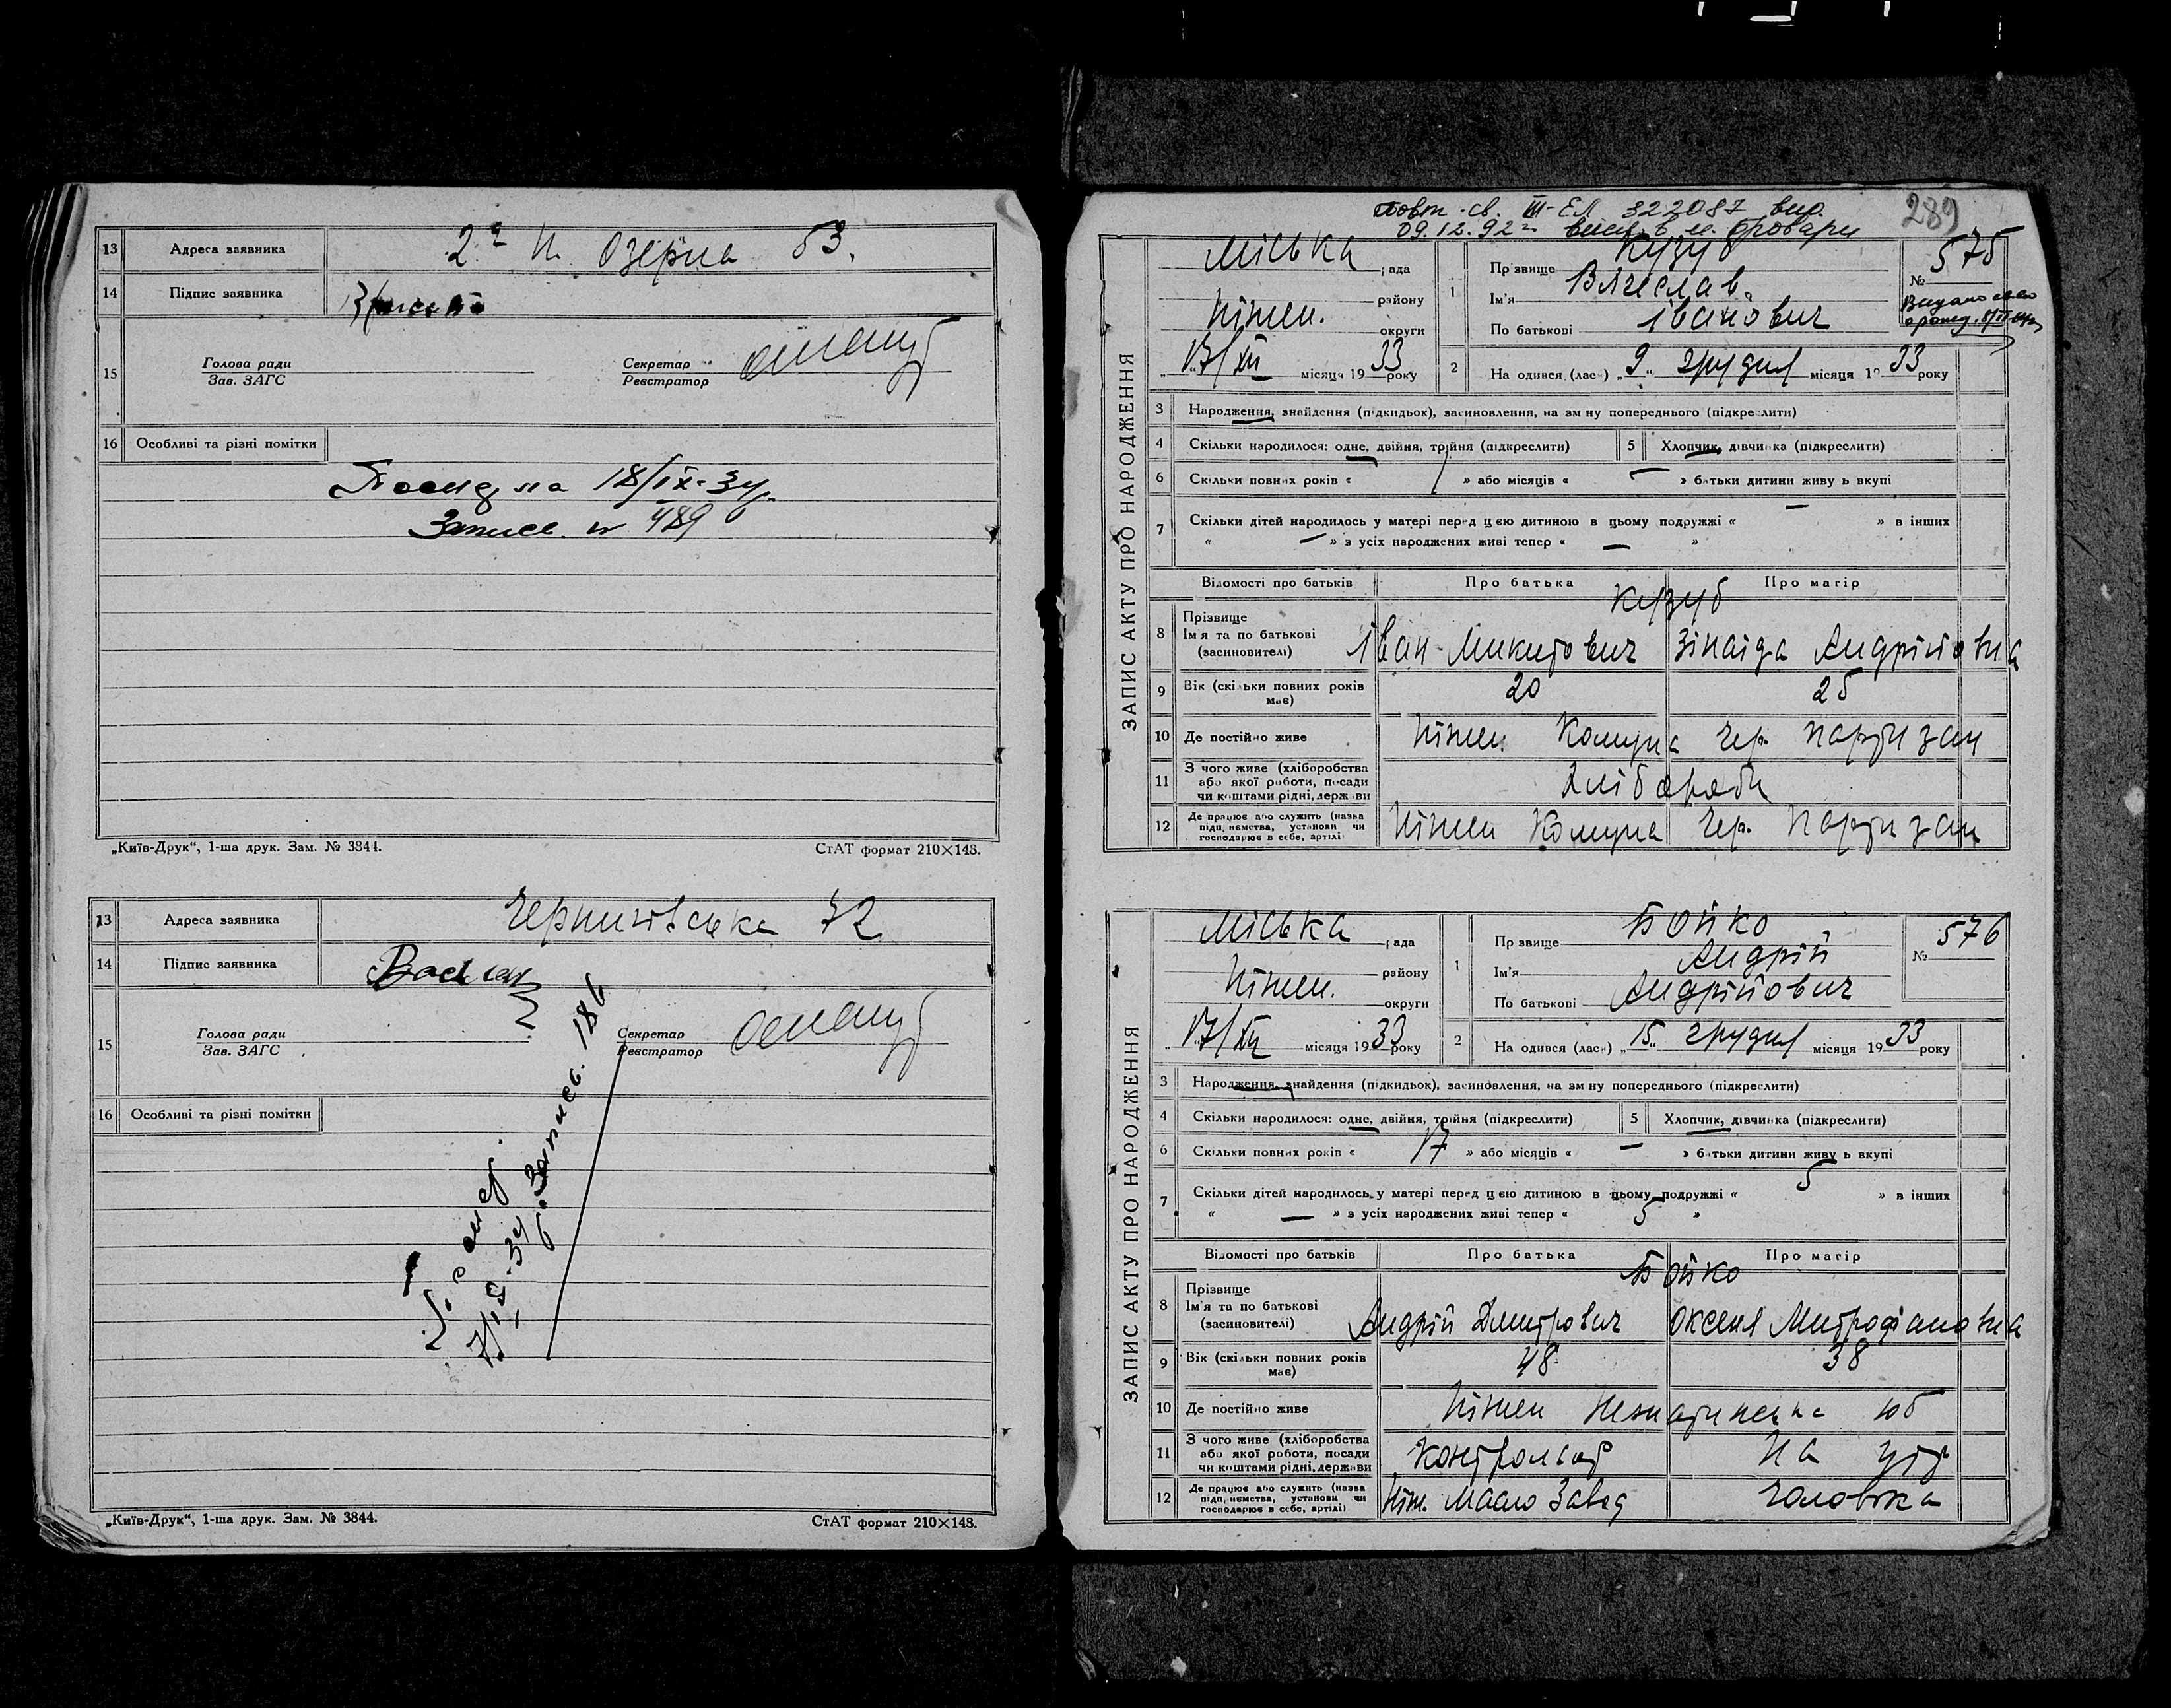 13 Адреса заявника 2га п. Озерна 53.
14 Підпис заявника
15 Голова ради
Зав. ЗАГС
Секретар
Реєстратор
16 Особливі та різні помітки
18/IX-34р.
Запис. N 489
„Київ-Друк“, 1-ша друк. Зам. № 3844.
СтАТ формат 210×148.
13 Адреса заявника Чернигівська 72
14 Підпис заявника
15 Голова ради
Зав. ЗАГС
Секретар
Реєстратор
16 Особливі та різні помітки
Запис. 186
„Київ-Друк“, 1-ша друк. Зам. № 3844.
СтАТ формат 210×148.
289
повт. св. III-ЕЛ 322087 вид.
09.12.92г. в м. Бровари
ЗАПИС АКТУ ПРО НАРОДЖЕННЯ
Міська рада
району
Ніжен. округи
17/XII місяця 1933 року
1 Прізвище Кузуб
Ім'я Вячеслав
По батькові Іванович
№ 575
Видано
2 Народився (лась) „9“ грудня місяця 1933 року
3 Народження, знайдення (підкидьок), засиновлення, на зміну попереднього (підкреслити)
4 Скільки народилося: одне, двійня, тройня (підкреслити)
5 Хлопчик, дівчинка (підкреслити)
6 Скільки повних років « 1 » або місяців « — » батьки дитини живуть вкупі
7 Скільки дітей народилось у матері перед цією дитиною в цьому подружжі « — » в інших
« — » з усіх народжених живі тепер « — »
Відомості про батьків Про батька Про матір
Кузуб
8 Прізвище
Ім'я та по батькові
(засиновителі)
Іван Микитович Зінаїда Андріївна
9 Вік (скільки повних років має) 20 25
10 Де постійно живе Ніжен Комуна Чер. партизан
11 З чого живе (хліборобства
або якої роботи, посади
чи коштами рідні, держави
Хлібороби
12 Де працює або служить (назва
підприємства, установи чи
господарює в себе, артілі)
Ніжен Комуна Чер. Партизан
ЗАПИС АКТУ ПРО НАРОДЖЕННЯ
Міська рада
району
Ніжен. округи
17/XII місяця 1933 року
1 Прізвище Бойко
Ім'я Андрій
По батькові Андрійович
№ 576
2 Народився (лась) „15“ грудня місяця 1933 року
3 Народження, знайдення (підкидьок), засиновлення, на зміну попереднього (підкреслити)
4 Скільки народилося: одне, двійня, тройня (підкреслити)
5 Хлопчик, дівчинка (підкреслити)
6 Скільки повних років « 17 » або місяців « — » батьки дитини живуть вкупі
7 Скільки дітей народилось у матері перед цією дитиною в цьому подружжі « 5 » в інших
« — » з усіх народжених живі тепер « 5 »
Відомості про батьків Про батька Про матір
Бойко
8 Прізвище
Ім'я та по батькові
(засиновителі)
Андрій Дмитрович Оксеня Митрофановна
9 Вік (скільки повних років має) 48 38
10 Де постійно живе Ніжен
11 З чого живе (хліборобства
або якої роботи, посади
чи коштами рідні, держави
Контрольор На утр
12 Де працює або служить (назва
підприємства, установи чи
господарює в себе, артілі)
Ніж. Масло Завод Чоловіка